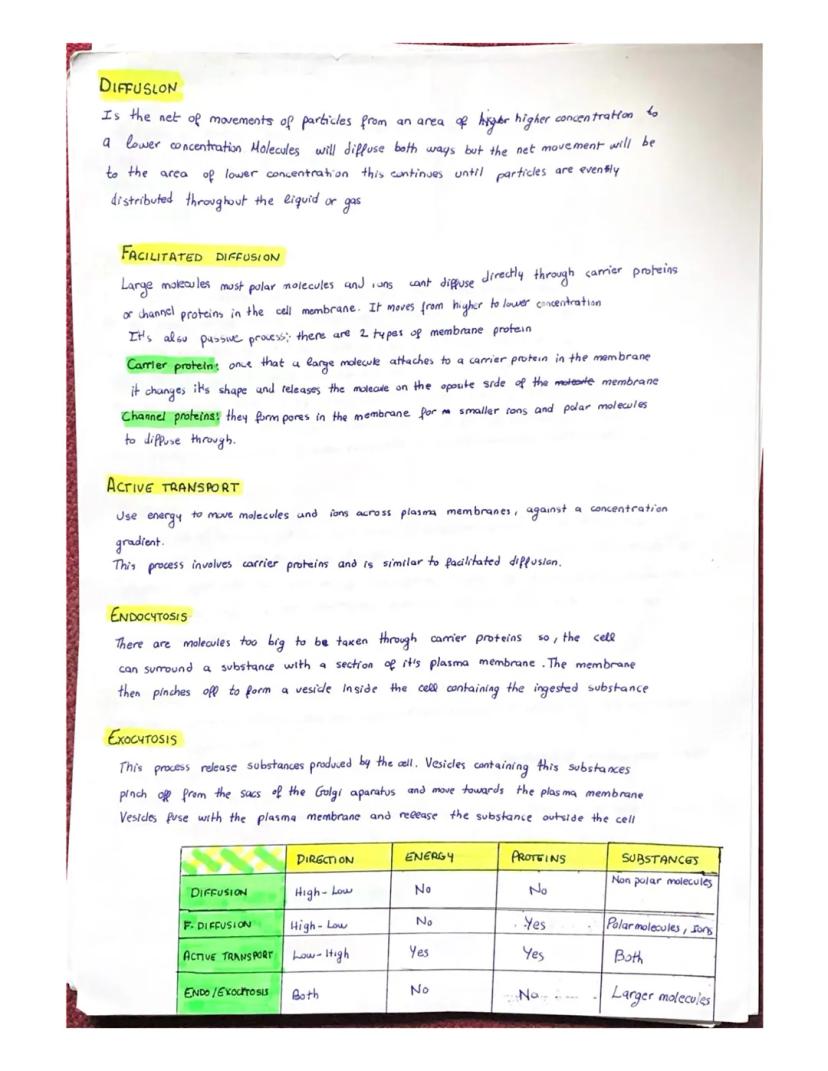 DIFFUSION
Is the net of movements of particles from an area of higher higher concentration to
a lower concentration Molecules will diffuse both ways but the net movement will be
to the area of lower concentration this continues until particles are evently
distributed throughout the liquid or gas
FACILITATED DIFFUSION
Large molecules most polar molecules and ions cant diffuse directly through carrier proteins
or channel proteins in the cell membrane. It moves from higher to lower concentration
It's also passive process; there are 2 types of membrane protein
Carrier protein: once that a large molecule attaches to a carrier protein in the membrane
it changes it's shape and releases the molecule on the oposite side of the molecule membrane
Channel proteins: they form pores in the membrane for smaller ions and polar molecules
to diffuse through.
ACTIVE TRANSPORT
Use energy to move molecules and ions across plasma membranes, against a concentration
gradient.
This process involves carrier proteins and is similar to facilitated diffusion.
ENDOCYTOSIS
There are molecules too big to be taken through carrier proteins so, the cell
can surround a substance with a section of it's plasma membrane. The membrane
then pinches off to form a vesicle inside the cell containing the ingested substance
EXOCYTOSIS
This process release substances produced by the cell. Vesicles containing this substances
pinch off from the sacs of the Golgi aparatus and move towards the plasma membrane
Vesicles fuse with the plasma membrane and release the substance outside the cell
DIRECTION ENERGY PROTEINS SUBSTANCES
DIFFUSION High-Low No No Non polar molecules
F. DIFFUSION High-Low No Yes Polar molecules, Ions
ACTIVE TRANSPORT Low-High Yes Yes Both
ENDO/EXOCYTOSIS Both No No Larger molecules